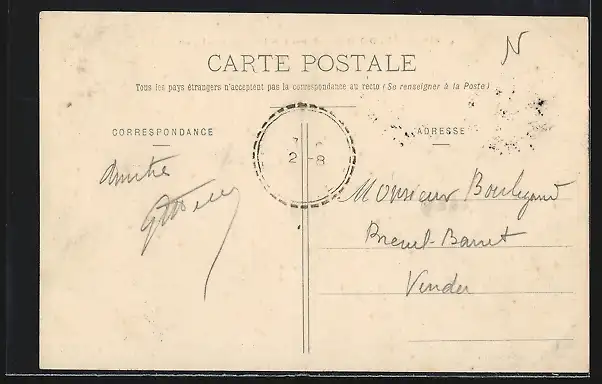 N
CARTE POSTALE
Tous les pays étrangers n'acceptent pas la correspondance au recto (Se renseigner à la Poste)
CORRESPONDANCE
ADRESSE
2-8
Amitié
Monsieur Boulegand
Breuil-Barret
Vendée